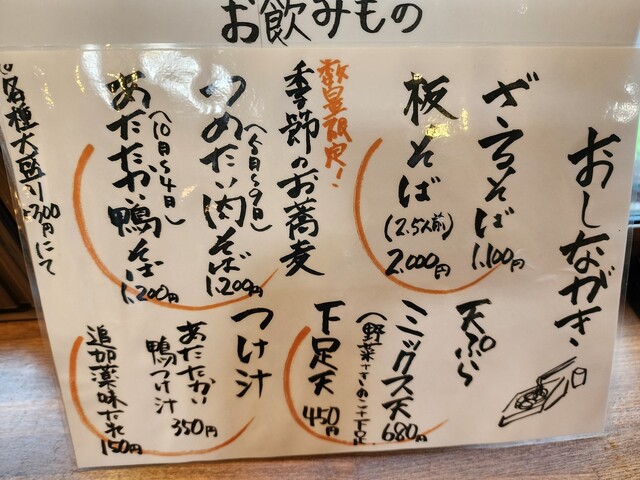 お飲みもの
おしながき
ざるそば 1.100円
板そば(2.5人前) 2.000円
数量限定!
季節のお蕎麦
つめたい肉そば 1.200円
(5月〜9月)
あたたか鴨そば 1.200円
(10月〜4月)
各種大盛り+300円にて
天ぷら
ミックス天 680円
(野菜+きのこ+下足)
下足天 450円
つけ汁
あたたかい
鴨つけ汁 350円
追加薬味だれ 150円